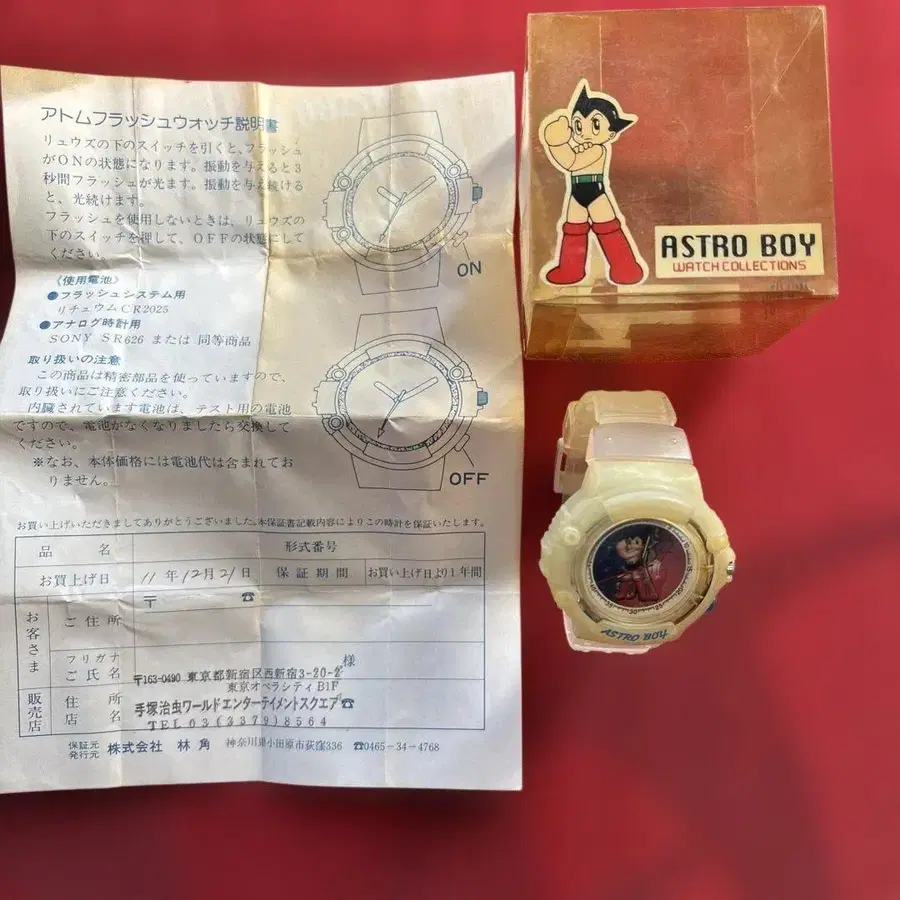 アトムフラッシュウォッチ説明書
リュウズの下のスイッチを引くと、フラッシュ
がONの状態になります。振動を与えると3
秒間フラッシュが光ます。振動を与え続ける
と、光続けます。
フラッシュを使用しないときは、リュウズの
下のスイッチを押して、OFFの状態にして
ください。
《使用電池》
●フラッシュシステム用
リチュウムCR2025
●アナログ時計用
SONY SR626 または 同等商品
取り扱いの注意
この商品は精密部品を使っていますので、
取り扱いにご注意ください。
内臓されています電池は、テスト用の電池
ですので、電池がなくなりましたら交換して
ください。
※なお、本体価格には電池代は含まれてお
りません。
ON
OFF
お買い上げいただきましてありがとうございました。本保証書記載内容によりこの時計を保証いたします。
品名 形式番号
お買上げ日 11年12月21日 保証期間 お買い上げ日より1年間
お客さま
〒 ☎
ご住所
フリガナ
ご氏名 様
販売店
住所
店名
〒163-0490 東京都新宿区西新宿3-20-2
東京オペラシティB1F
手塚治虫ワールドエンターテイメントスクエア☎
TEL 03(3379)8564
保証元
発行元 株式会社 林角 神奈川県小田原市荻窪336 ☎0465-34-4768
ASTRO BOY
WATCH COLLECTIONS
ASTRO BOY